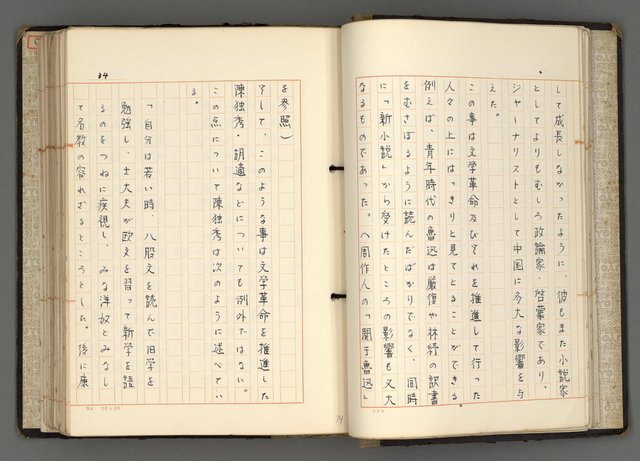 して成長しなかったように、彼もまた小説家
としてよりもむしろ政論家・啓蒙家であり、
ジャーナリストとして中国に多大な影響を与
えた。
この事は文学革命及びそれを推進して行った
人々の上にはっきりと見てとることができる。
例えば、青年時代の魯迅は厳復や林紓の訳書
をむさぼるように読んだばかりでなく、同時
に「新小説」から受けたところの影響も又大
なるものであった。(周作人の「関于魯迅」
34
を参照)
そして、このような事は文学革命を推進した
陳独秀・胡適などについても例外ではない。
この点について陳独秀は次のように述べてい
る。
「自分は若い時、八股文を読んで旧学を
勉強し、士大夫が欧文を習って新学を語
るのをつねに疾視し、みな洋奴とみなし
て名教の容れざるところとした。後に康
34